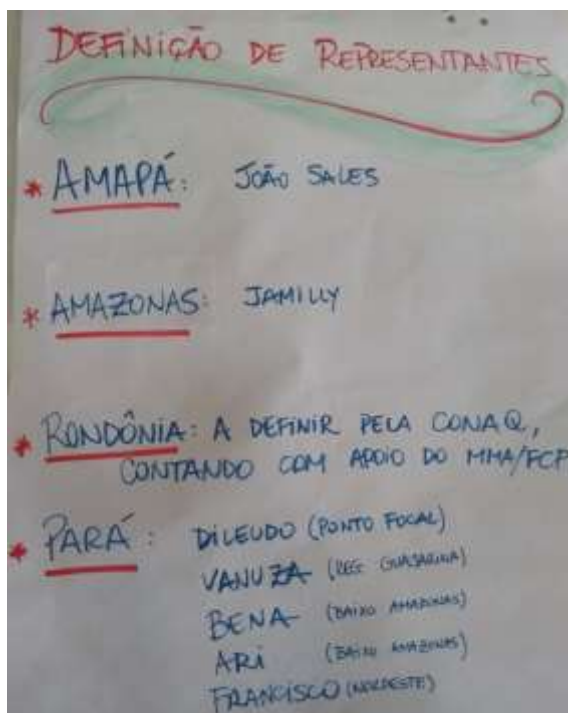 DEFINIÇÃO DE REPRESENTANTES
* AMAPÁ: JOÃO SALES
* AMAZONAS: JAMILLY
* RONDÔNIA: A DEFINIR PELA CONAQ,
CONTANDO COM APOIO DO MMA/FCP
* PARÁ: DILEUDO (PONTO FOCAL)
VANUZA (REG. GUAJARINA)
BENA (BAIXO AMAZONAS)
ARI (BAIXO AMAZONAS)
FRANCISCO (NORDESTE)